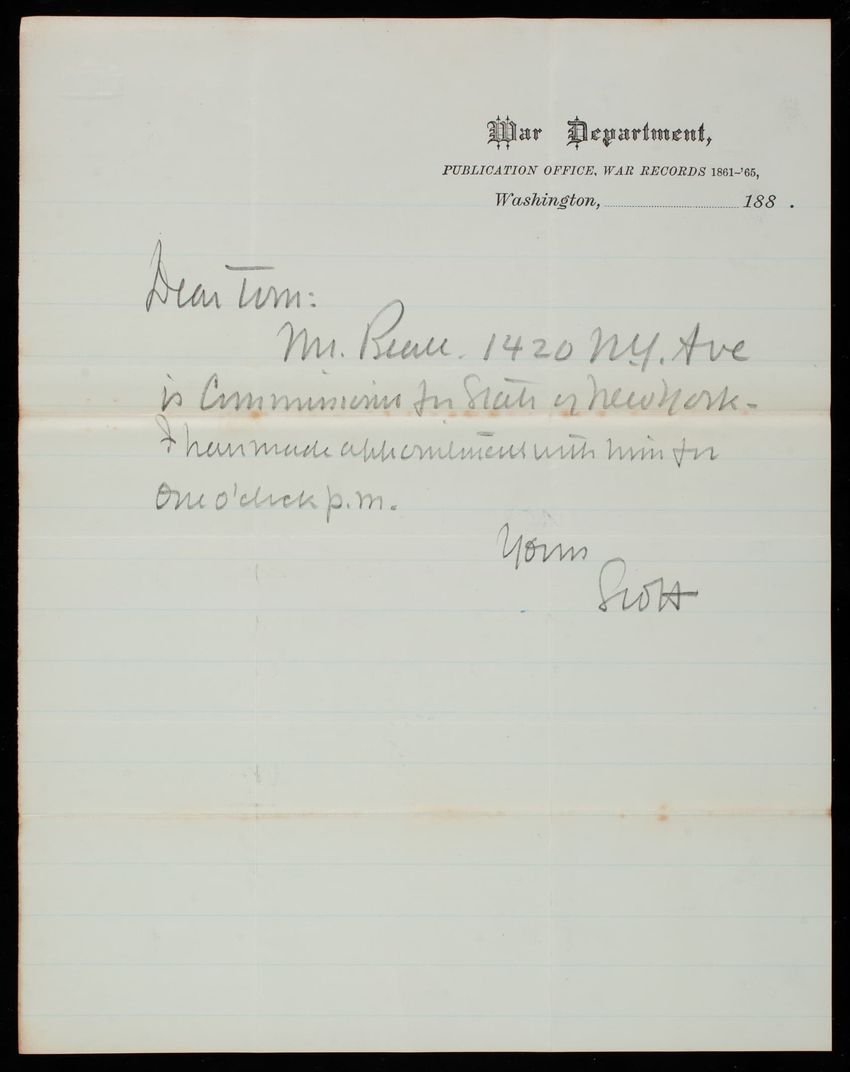 War Department,
PUBLICATION OFFICE, WAR RECORDS 1861-'65,
Washington, 188 .
Dear Tom:
Mr. Beall. 1420 N.Y. Ave
is Commissioner for State of New York-
I have made appointment with him for
One o'clock p.m.
Yours
Scott